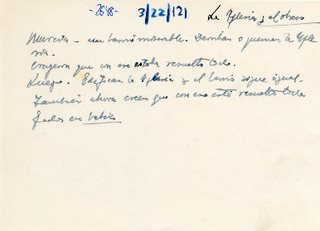 -258- 3/22/121 La Iglesia y el obrero
Murcia - un barrio miserable. Derriban o queman la Igle
sia.
Creyeron que con eso estaba resuelto todo.
Luego. Edifican la Iglesia y el barrio sigue igual.
También ahora creen que con eso está resuelto todo
Todos en babia